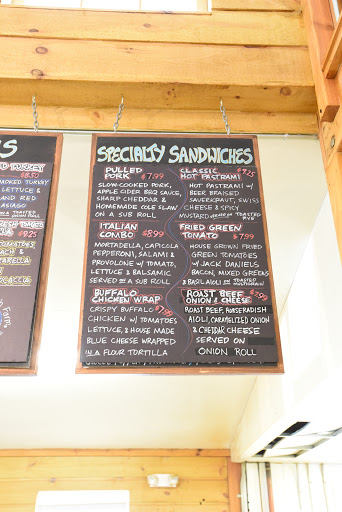 S
D TURKEY
$8.50
SMOKED TURKEY
LETTUCE &
AND RED
ASIAGO
$9.25
TOMATOES,
SPECIALTY SANDWICHES
PULLED
PORK $7.99
SLOW-COOKED PORK,
APPLE CIDER BBQ SAUCE,
SHARP CHEDDAR &
HOMEMADE COLE SLAW
ON A SUB ROLL
ITALIAN
COMBO $8.99
MORTADELLA, CAPICOLA
PEPPERONI, SALAMI &
PROVOLONE W/ TOMATO,
LETTUCE & BALSAMIC
SERVED ON A SUB ROLL
BUFFALO
CHICKEN WRAP
CRISPY BUFFALO $7.99
CHICKEN W/ TOMATOES
LETTUCE, & HOUSE MADE
BLUE CHEESE WRAPPED
IN A FLOUR TORTILLA
CLASSIC $9.25
HOT PASTRAMI
HOT PASTRAMI W/
BEER BRAISED
SAUERKRAUT, SWISS
CHEESE & SPICY
MUSTARD SERVED ON TOASTED RYE
FRIED GREEN
TOMATO $7.99
HOUSE GROWN FRIED
GREEN TOMATOES
W/ JACK DANIELS
BACON, MIXED GREENS
& BASIL AIOLI ON TOASTED
ROAST BEEF $7.99
ONION & CHEESE
ROAST BEEF, HORSERADISH
AIOLI, CARAMELIZED ONION
& CHEDDAR CHEESE
SERVED ON
ONION ROLL